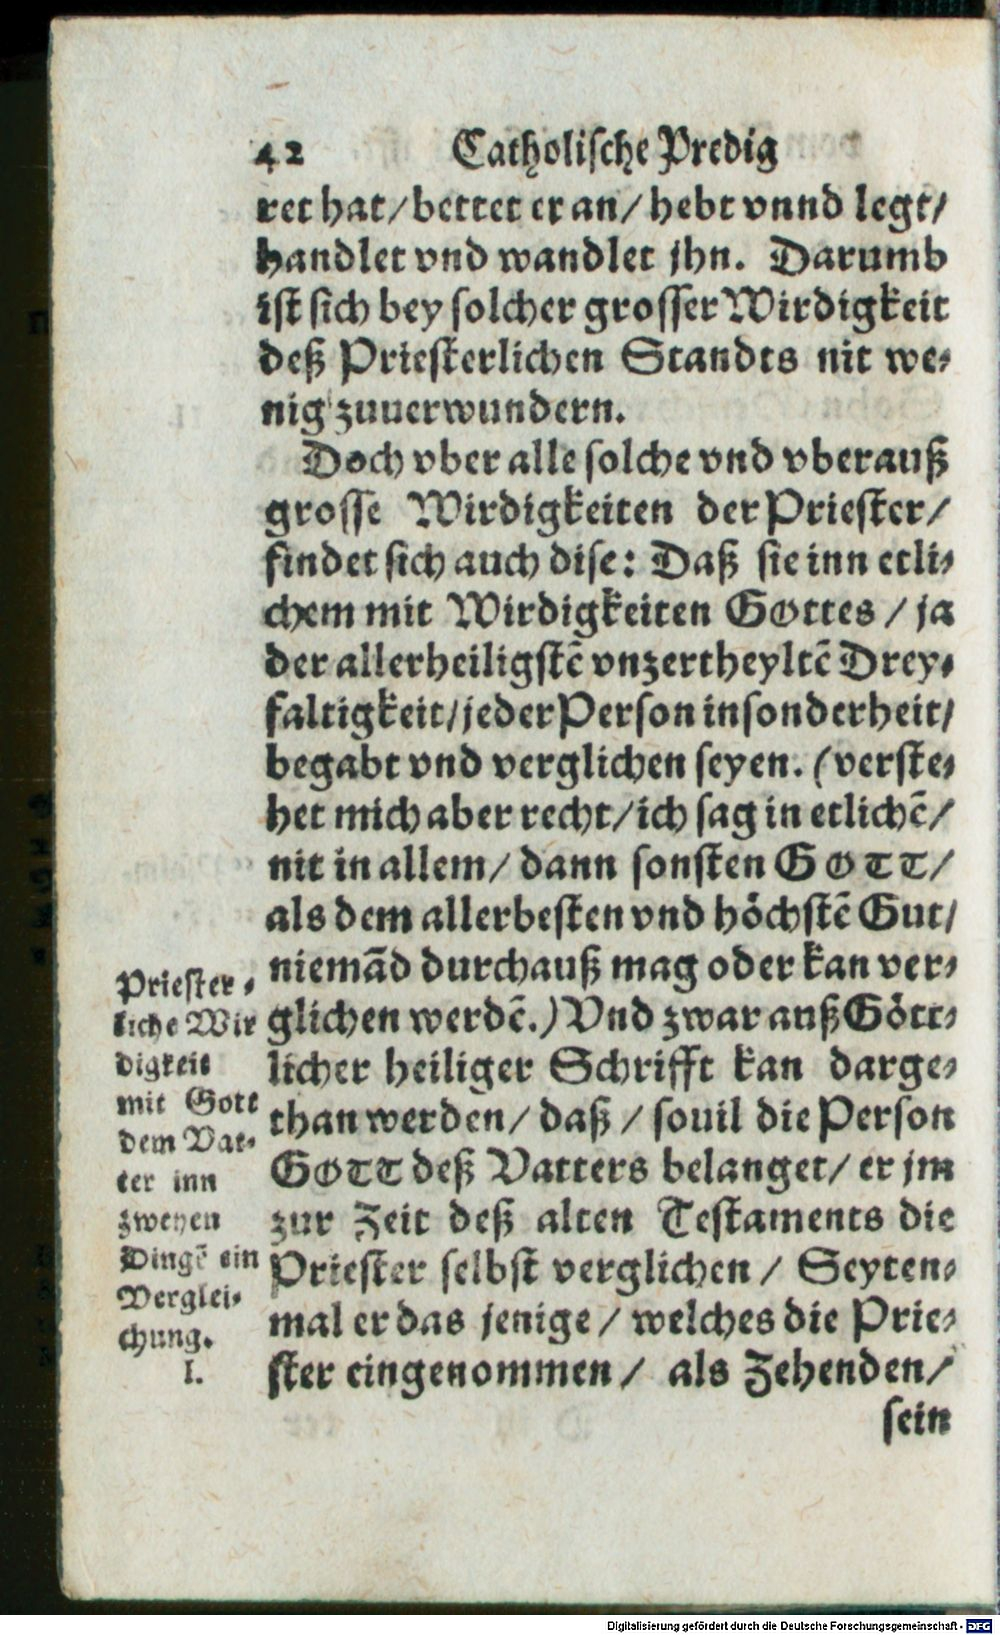 42 Catholische Predig
ret hat/ bettet er an/ hebt vnnd legt/
handlet vnd wandlet jhn. Darumb
ist sich bey solcher grosser Wirdigkeit
deß Priesterlichen Standts nit we-
nig zuuerwundern.
Doch vber alle solche vnd vberauß
grosse Wirdigkeiten der Priester/
findet sich auch dise: Daß sie inn etli-
chem mit Wirdigkeiten GOttes / ja
der allerheiligstē vnzertheyltē Drey-
faltigkeit/ jeder Person insonderheit/
begabt vnd verglichen seyen. (verste-
het mich aber recht/ ich sag in etlichē/
nit in allem/ dann sonsten GOTT/
als dem allerbesten vnd höchstē Gut/
niemād durchauß mag oder kan ver-
glichen werdē.) Vnd zwar auß Gött-
licher heiliger Schrifft kan darge-
than werden/ daß / souil die Person
GOTT deß Vatters belanget/ er jm
zur Zeit deß alten Testaments die
Priester selbst verglichen / Seyten-
mal er das jenige / welches die Prie-
ster eingenommen / als Zehenden/
sein
Priester-
liche Wir
digkeit
mit Gott
dem Vat-
ter inn
zweyen
Dingē ein
Verglei-
chung.
I.
Digitalisierung gefördert durch die Deutsche Forschungsgemeinschaft - DFG